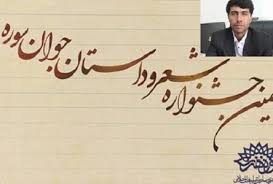 مین جشنواره شعر و داستان جوان سوره